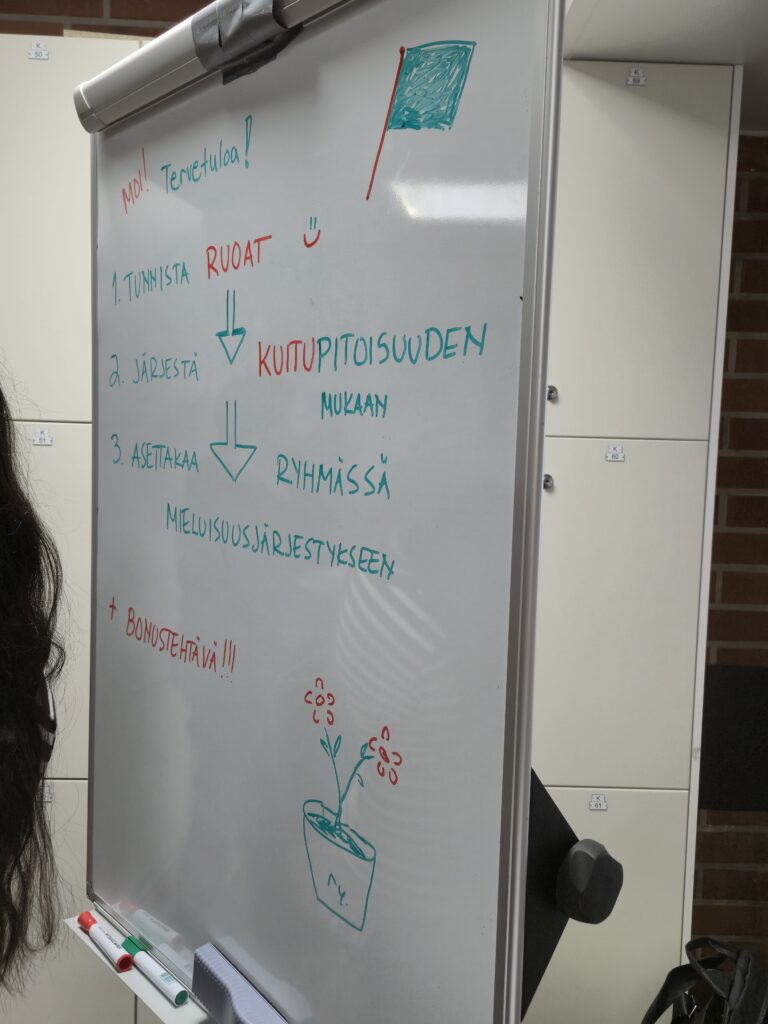 MOI! Tervetuloa!
1. TUNNISTA RUOAT
2. JÄRJESTÄ KUITUPITOISUUDEN
MUKAAN
3. ASETTAKAA RYHMÄSSÄ
MIELUISUUSJÄRJESTYKSEEN
+ BONUSTEHTÄVÄ!!!
ry.
K 50
K 59
K 51
K 60
K 61